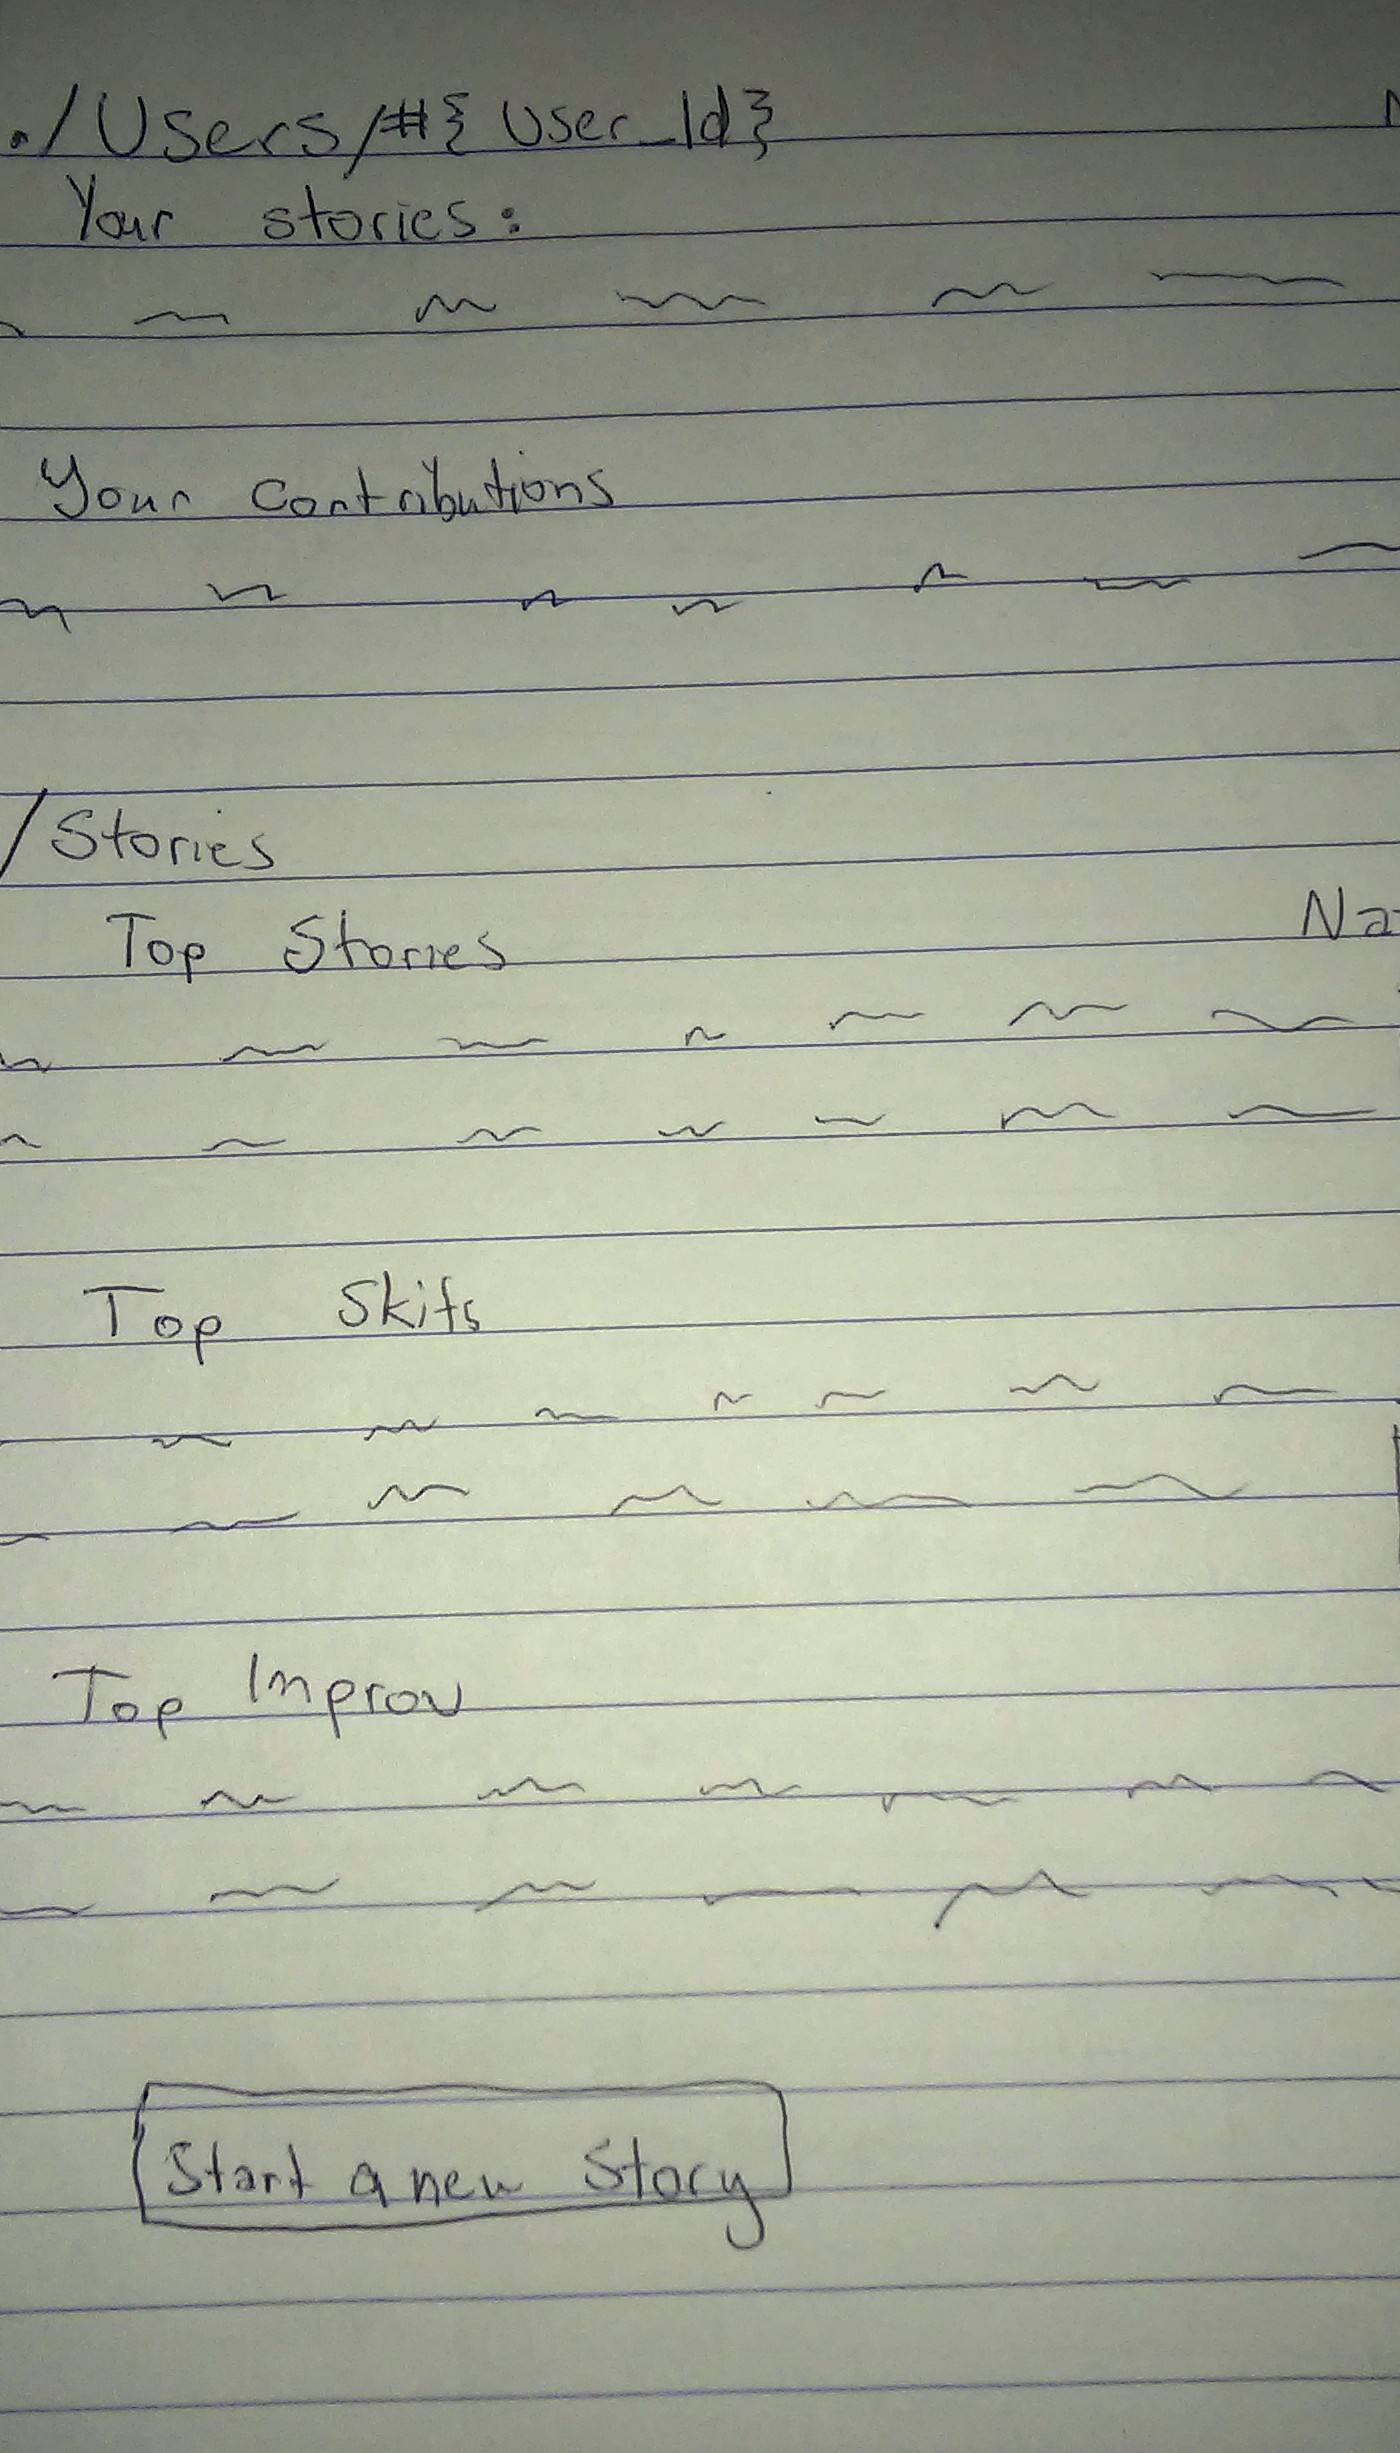 ./Users/#{User_Id}
Your stories:
Your contributions
/Stories
Top Stories
Top Skits
Top Improv
Start a new Story